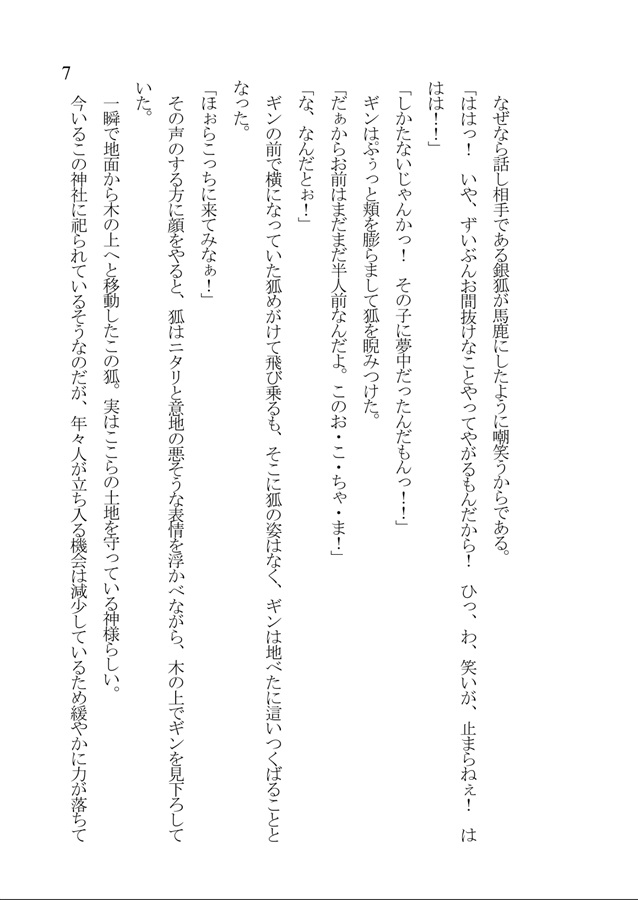 なぜなら話し相手である銀狐が馬鹿にしたように嘲笑うからである。
「ははっ！　いや、ずいぶんお間抜けなことやってやがるもんだから！　ひっ、わ、笑いが、止まらねぇ！　は
はは！！」
「しかたないじゃんかっ！　その子に夢中だったんだもんっ！！」
ギンはぷぅっと頬を膨らまして狐を睨みつけた。
「だぁからお前はまだまだ半人前なんだよ。このお・こ・ちゃ・ま！」
「な、なんだとぉ！」
ギンの前で横になっていた狐めがけて飛び乗るも、そこに狐の姿はなく、ギンは地べたに這いつくばることと
なった。
「ほぉらこっちに来てみなぁ！」
その声のする方に顔をやると、狐はニタリと意地の悪そうな表情を浮かべながら、木の上でギンを見下ろして
いた。
一瞬で地面から木の上へと移動したこの狐。実はここらの土地を守っている神様らしい。
今いるこの神社に祀られているそうなのだが、年々人が立ち入る機会は減少しているため緩やかに力が落ちて
7